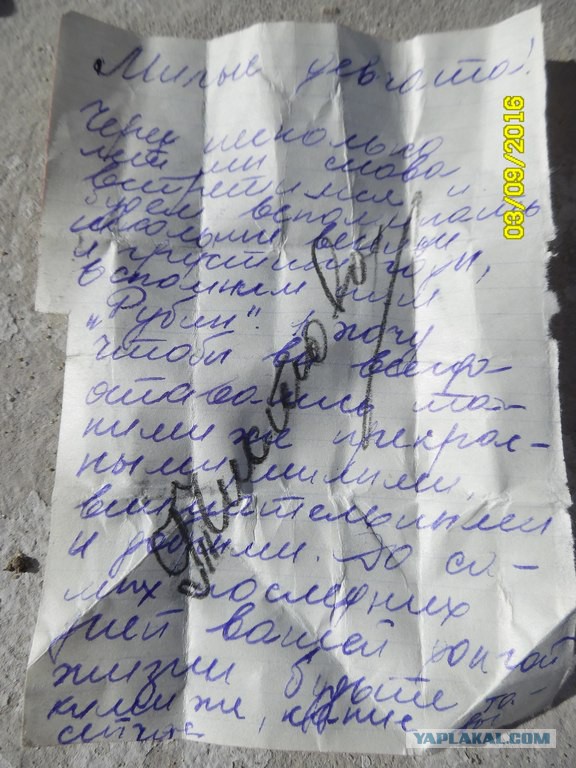 Милые девчата!
Через несколько
лет мы снова
встретимся и
будем вспоминать
школьные веселые
и грустные годы,
вспомним наш
"Рубин" Я хочу
чтобы вы всегда
оставались та-
кими же прекрас-
ными, милыми,
внимательными
и добрыми. До са-
мых последних
дней вашей долгой
жизни будьте та-
кими же, какие вы
сейчас
03/09/2016
YAPLAKAL.COM